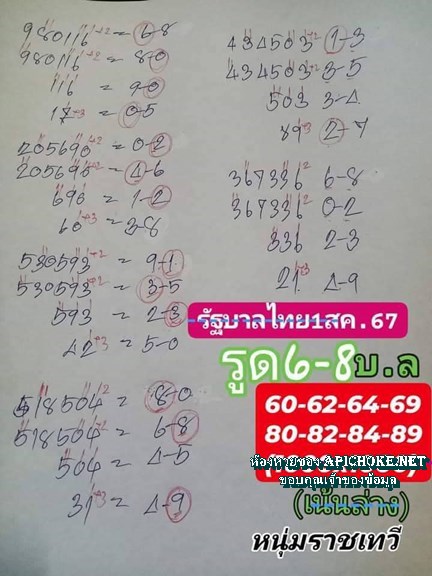 980116 +2 = 6-8
980116 +2 = 8-0
116 = 9-0
17 +3 = 0-5
205690 +2 = 0-2
205690 +2 = 4-6
690 = 1-2
60 +3 = 3-8
530593 +2 = 9-1
530593 +2 = 3-5
593 = 2-3
42 +3 = 5-0
518504 +2 = 8-0
518504 +2 = 6-8
504 = 4-5
31 +3 = 4-9
434503 +2 1-3
434503 +2 3-5
503 3-4
89 +3 2-7
367336 2 6-8
367336 2 0-2
336 2-3
21 +3 4-9
รัฐบาลไทย1สค.67
รูด6-8บ.ล
60-62-64-69
80-82-84-89
ห้องหวยซอง APICHOKE.NET
ขอบคุณเจ้าของข้อมูล
(เน้นล่าง)
หนุ่มราชเทวี